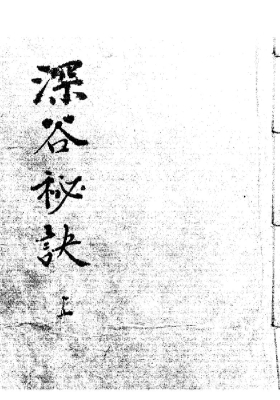 深谷秘訣 上